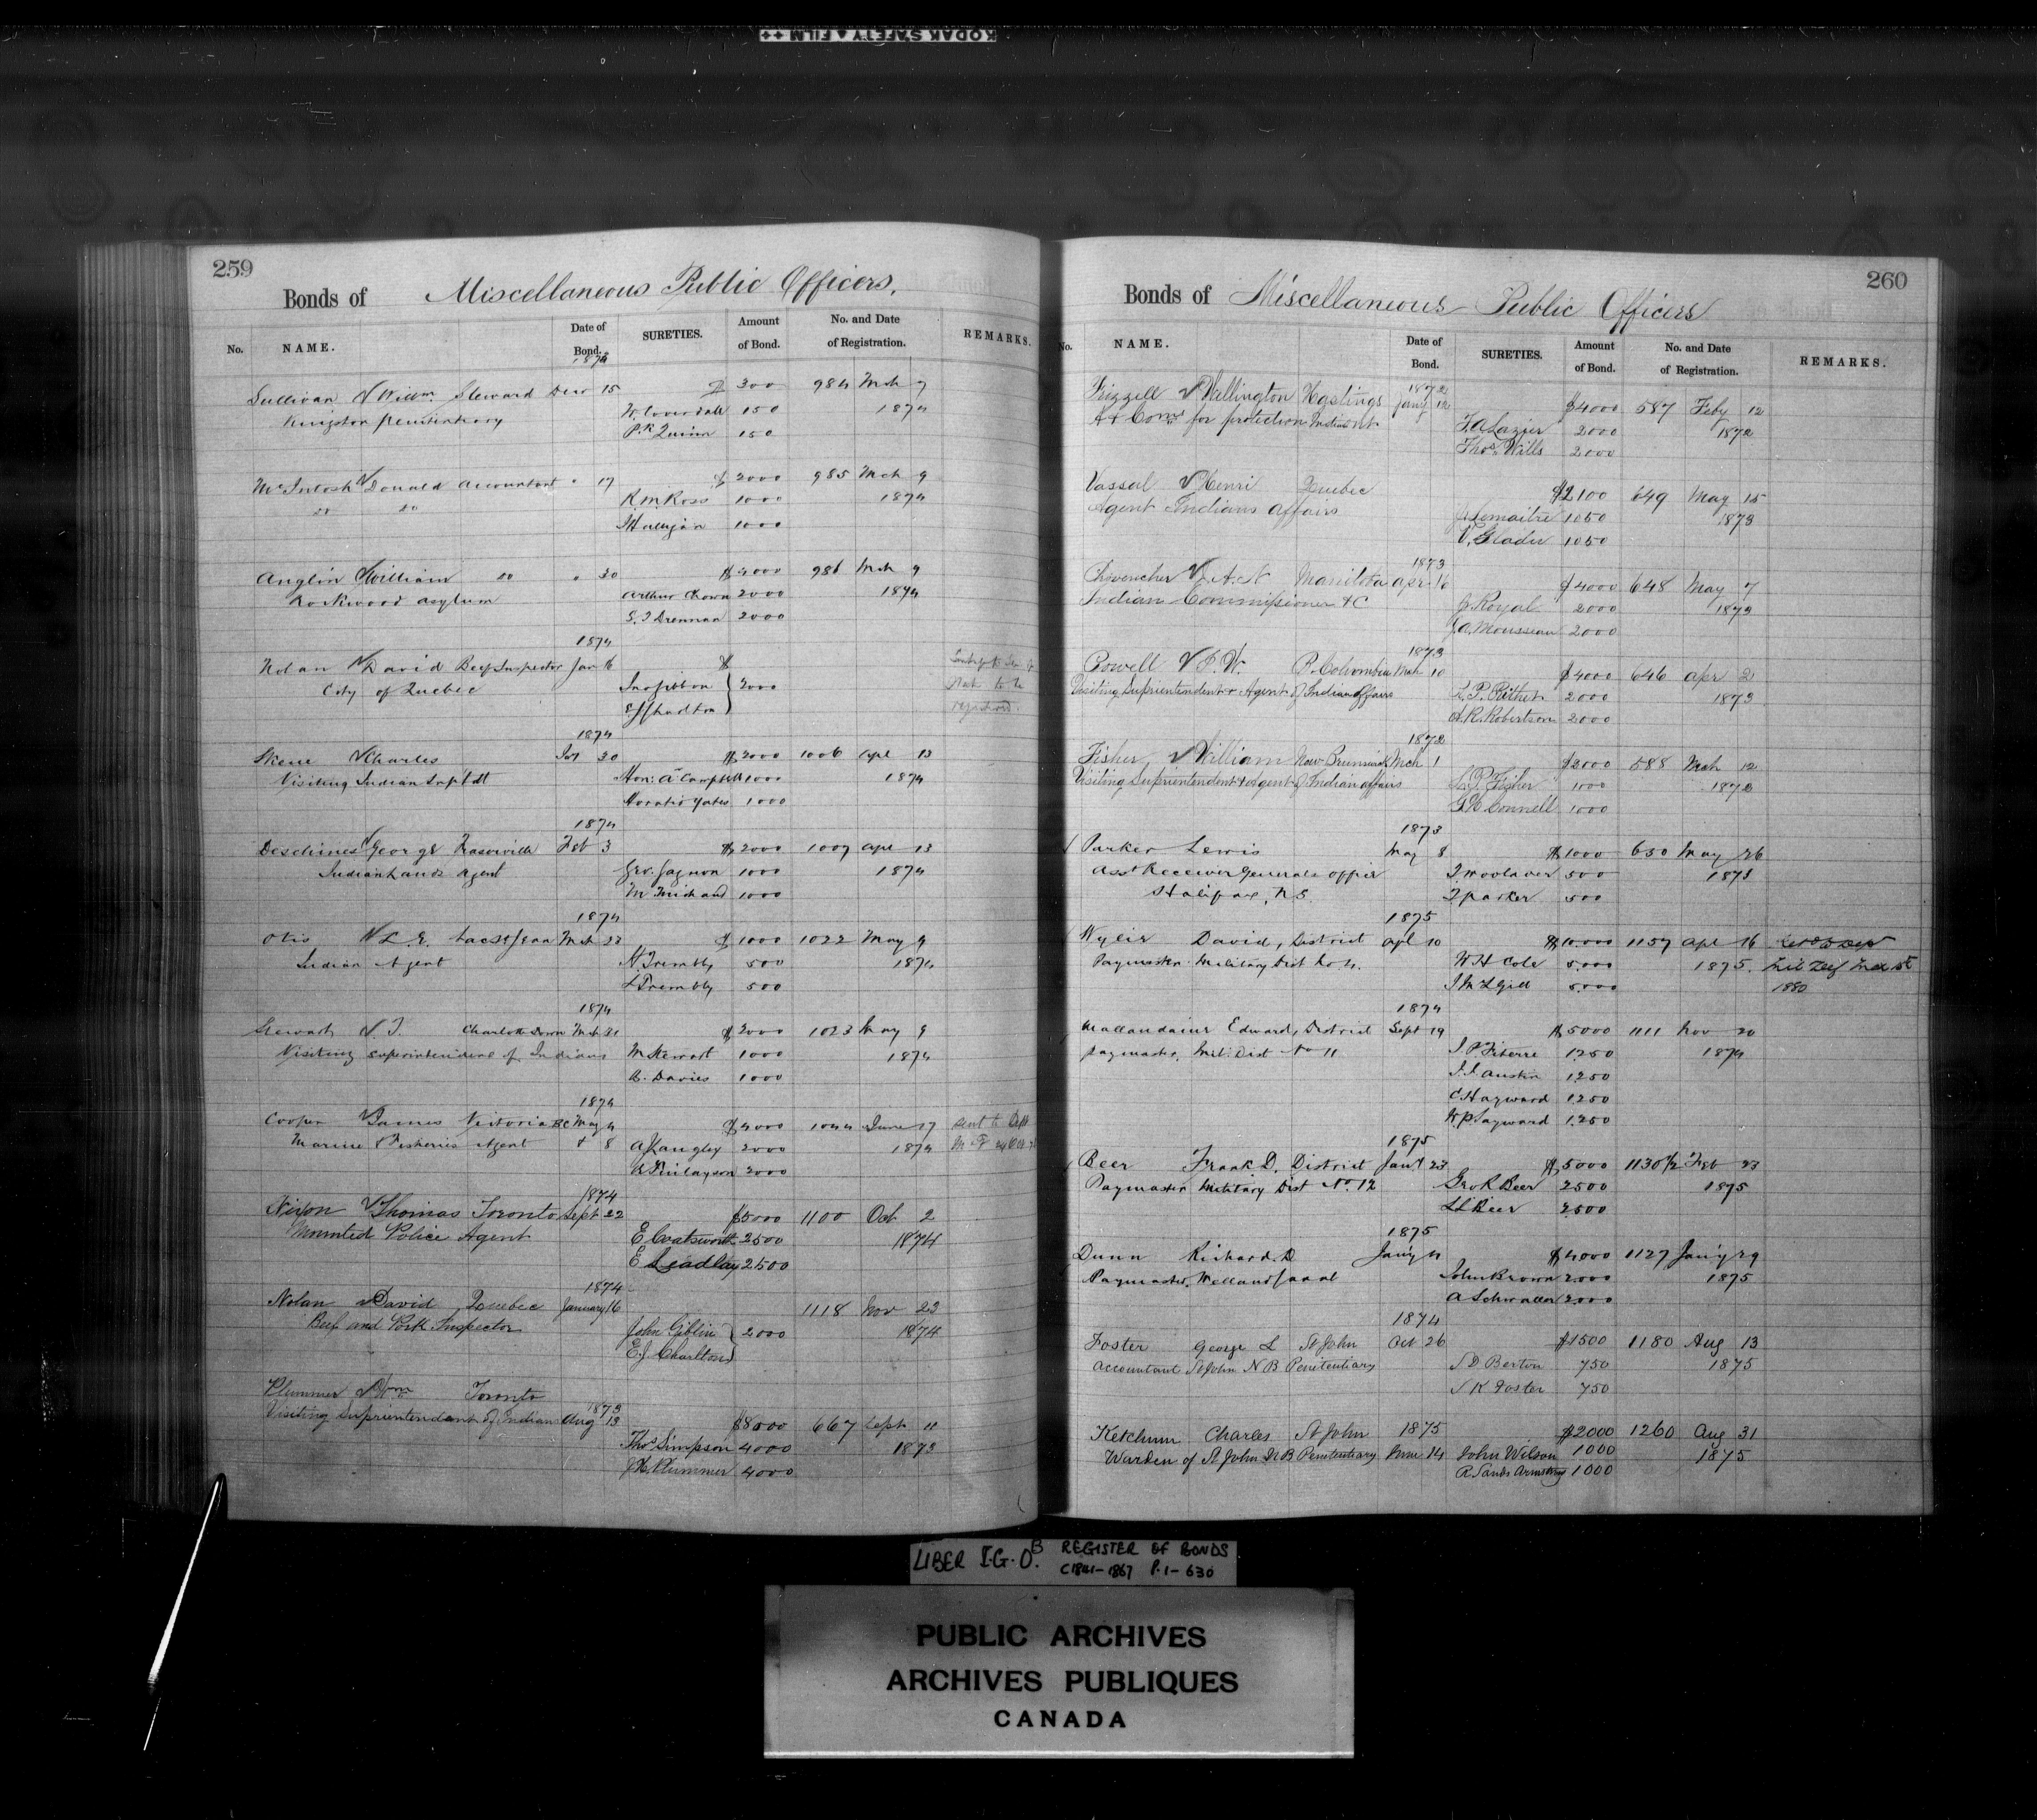 KODAK SAFETY FILM
259
Bonds of Miscellaneous Public Officers.
No. NAME. Date of Bond. SURETIES. Amount of Bond. No. and Date of Registration. REMARKS.
Sullivan Willm. Steward Decr 15 $ 300 984 Mch 9
Kingston Penitentiary W. Coverdale 150 1874
Pk Quinn 150
McIntosh Donald Accountant " 17 $ 2000 985 Mch 9
do do R.M. Ross 1000 1874
1000
Anglin William do " 30 $ 4000 986 Mch 9
Rockwood Asylum Arthur Chown 2000 1874
S. T Drennan 2000
1874
Nolan David Beef Inspector Jan 16 $
City of Quebec 2000
registered.
1874
Skene Charles 30 $ 2000 1006 Apl 13
Visiting Indian Supt Hon: A Campbell 1000 1874
Horatio Yates 1000
1874
Deschenes George Fraserville Feb 3 $ 2000 1007 Apl 13
Indian Lands Agent Geo. Gagnon 1000 1874
M Michaud 1000
1874
Otis L. E. Lac St Jean Mch 23 $ 1000 1022 May 9
Indian Agent H. Trembly 500 1874
Trembly 500
1874
Stewart Charlottetown Mch 21 $ 2000 1023 May 9
Visiting Superintendent of Indians M Stewart 1000 1874
B. Davies 1000
1874
Cooper James Victoria BC May 4 $ 4000 1044 June 17 Sent to Dept
Marine & Fisheries Agent & 8 A J Langley 2000 1874
R Finlayson 2000
1874
Nixon Thomas Toronto Sept 22 $5000 1100 Oct 2
Mounted Police Agent E Coatsworth 2500 1874
E Leadlay 2500
1874
Nolan David Quebec January 16 1118 Nov 23
Beef and Pork Inspector John Giblin 2000 1874
E.J. Charlton
Plummer Wm Toronto 1873
Visiting Suprientendant of Indians Aug 13 $8000 667 Sept 11
Thos Simpson 4000 1873
Plummer 4000
260
Bonds of Miscellaneous Public Officers
No. NAME. Date of Bond. SURETIES. Amount of Bond. No. and Date of Registration. REMARKS.
1872
Frizzell Wellington Hastings Jany 12 $4000 587 Feby 12
for protection Indian F.A Lazier 2000 1872
Thos Wills 2000
Vassal Henri Quebec $2100 649 May 15
Agent Indians Affairs J. Lemaitre 1050 1873
V. Gladu 1050
1873
Provencher J. A. N Manitoba Apr 16 $4000 648 May 7
Indian Commissioner &C J. Royal 2000 1873
J. A. Mousseau 2000
1873
Powell I. W. B. Columbia Mch 10 $4000 646 Apr 2
Visiting Suprientendent & Agent of Indian Affairs R. P. Rithet 2000 1873
A. R. Robertson 2000
1872
Fisher William New Brunswick Mch 1 $2000 588 Mch 12
Visiting Suprientendent & Agent of Indian affairs L. P. Fisher 1000 1872
Connell 1000
1873
Parker Lewis May 8 $1000 650 May 26
Asst Receiver Generals office Woolaver 500 1873
Halifax, N S. Parker 500
1875
Wylie David, District Apl 10 $10.000 1157 Apl 16
Paymaster Military Dist No 4. W H Cole 5.000 1875.
Gill 5.000 1880
1874
Mallandaine Edward, District Sept 19 $5000 1111 Nov 20
Paymaster, Mil: Dist No 11 1250 1874
J. J. Austin 1250
C Hayward 1250
W P Sayward 1250
1875
Beer Frank D. District Jany 23 $5000 1130 1/2 Feb 23
Paymaster Military Dist No. 12 Geo R Beer 2500 1875
Beer 2500
1875
Dunn Richard D Jany 4 $4000 1127 Jany 29
Paymaster, Welland Canal John Brown 2000 1875
A Schwaller 2000
1874
Foster George L St John Oct 26 $1500 1180 Aug 13
Accountant St John N B Penitentiary S D Berton 750 1875
S K Foster 750
Ketchum Charles St John 1875 $2000 1260 Aug 31
Warden of St John N B Penitentiary June 14 John Wilson 1000 1875
R. Sands Armstrong 1000
LIBER I.G.O.B REGISTER OF BONDS
C1841-1867 P.1-630
PUBLIC ARCHIVES
ARCHIVES PUBLIQUES
CANADA